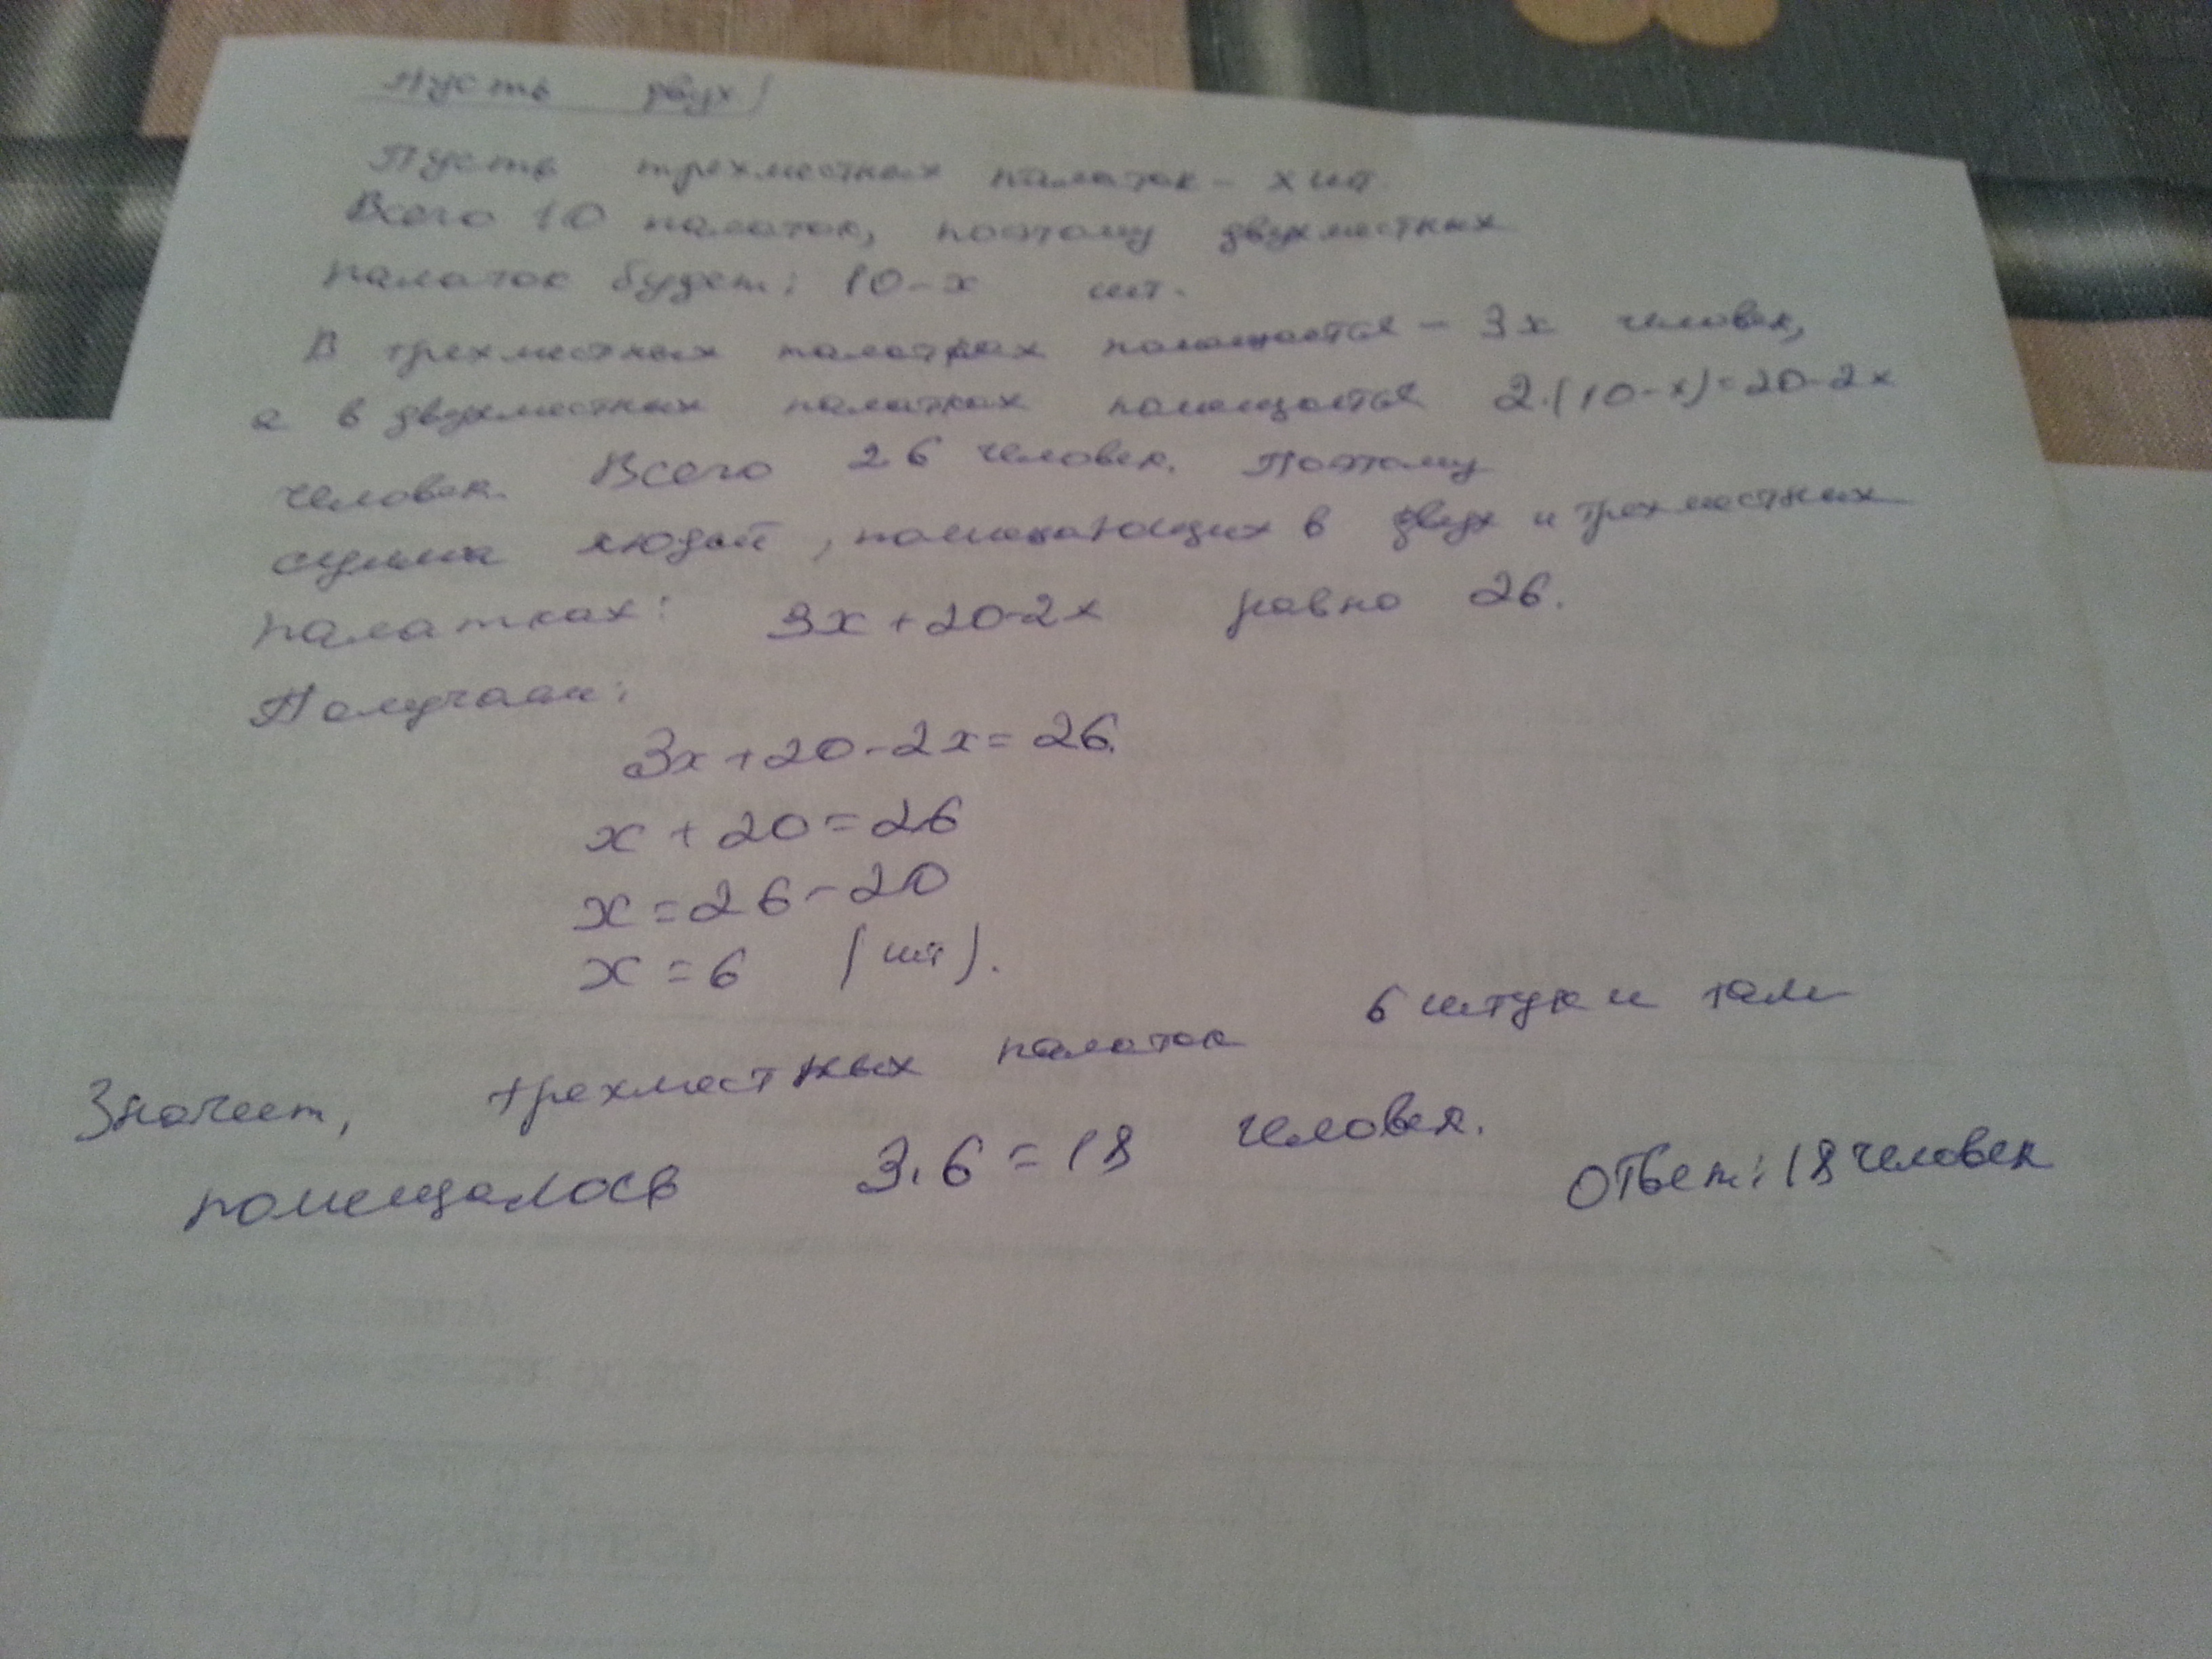 Пусть двух
Пусть трехместных палаток - х шт.
Всего 10 палаток, поэтому двухместных
палаток будет: 10-х шт.
В трехместных палатках помещается - 3х человек,
а в двухместных палатках помещается 2·(10-х)=20-2х
человек. Всего 26 человек. Поэтому
сумма людей, помещающих в двух и трехместных
палатках: 3х+20-2х равно 26.
Получаем:
3х+20-2х=26.
х+20=26
х=26-20
х=6 (шт).
Значит, трехместных палаток 6 штук и там
помещалось 3·6=18 человек.
Ответ: 18 человек